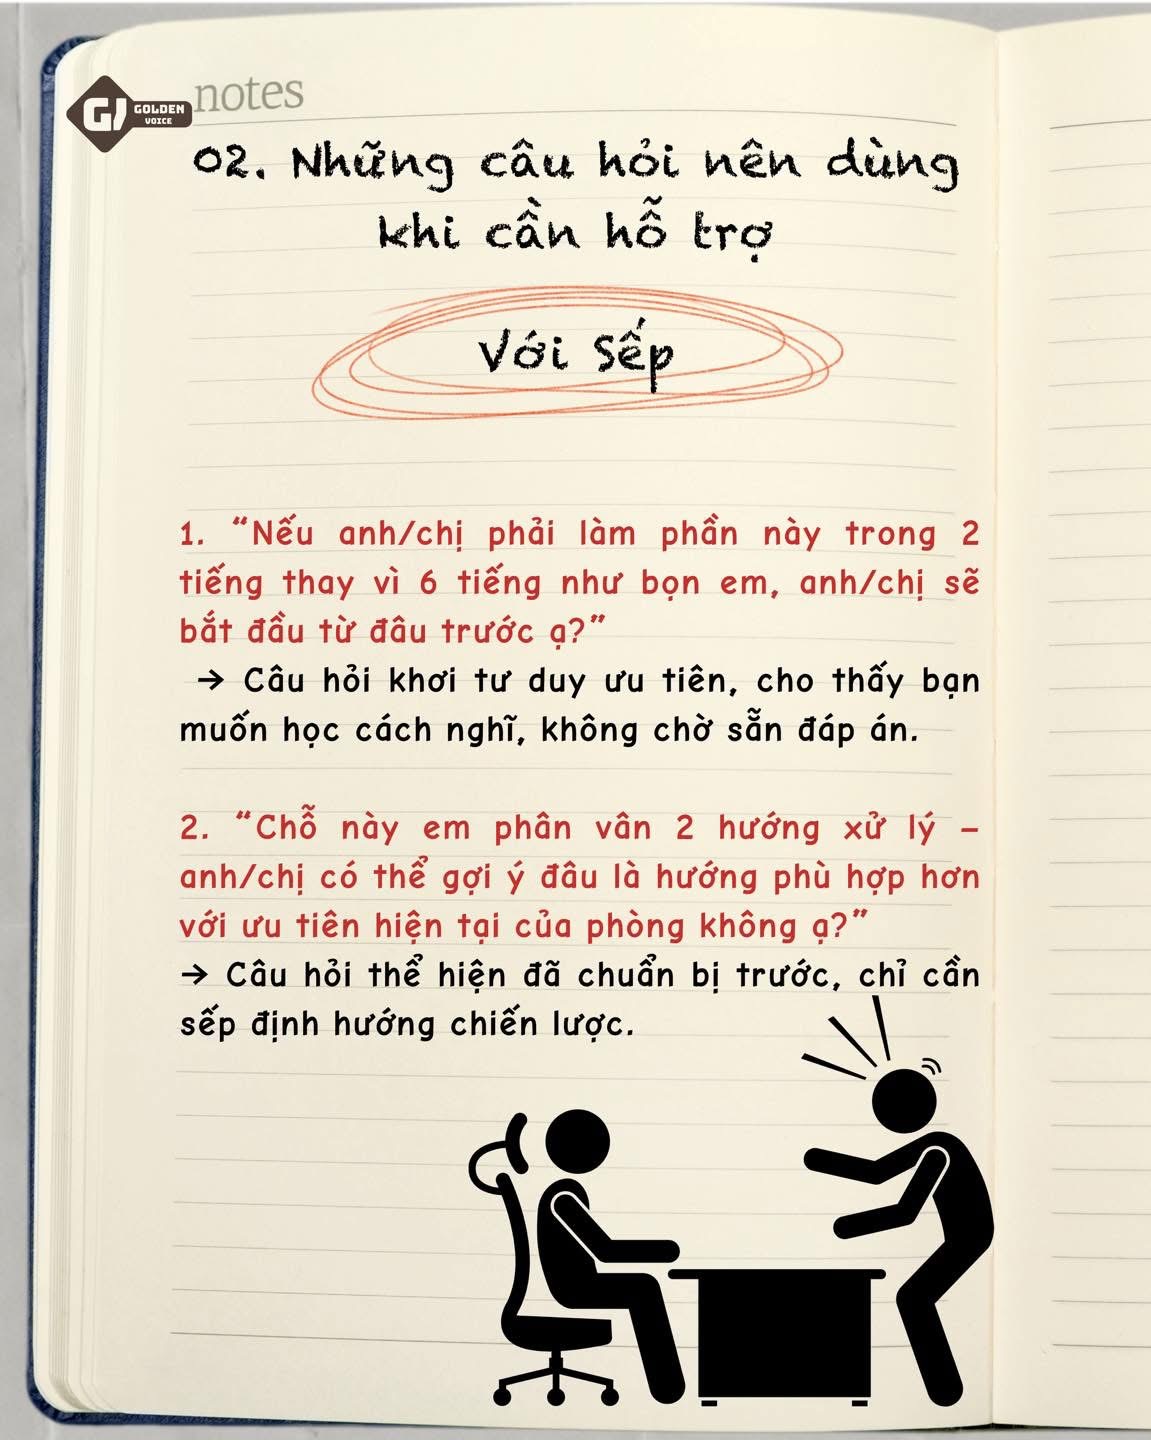 GOLDEN
VOICE
notes
02. Những câu hỏi nên dùng
khi cần hỗ trợ
Với Sếp
1. “Nếu anh/chị phải làm phần này trong 2
tiếng thay vì 6 tiếng như bọn em, anh/chị sẽ
bắt đầu từ đâu trước ạ?”
→ Câu hỏi khơi tư duy ưu tiên, cho thấy bạn
muốn học cách nghĩ, không chờ sẵn đáp án.
2. “Chỗ này em phân vân 2 hướng xử lý –
anh/chị có thể gợi ý đâu là hướng phù hợp hơn
với ưu tiên hiện tại của phòng không ạ?”
→ Câu hỏi thể hiện đã chuẩn bị trước, chỉ cần
sếp định hướng chiến lược.